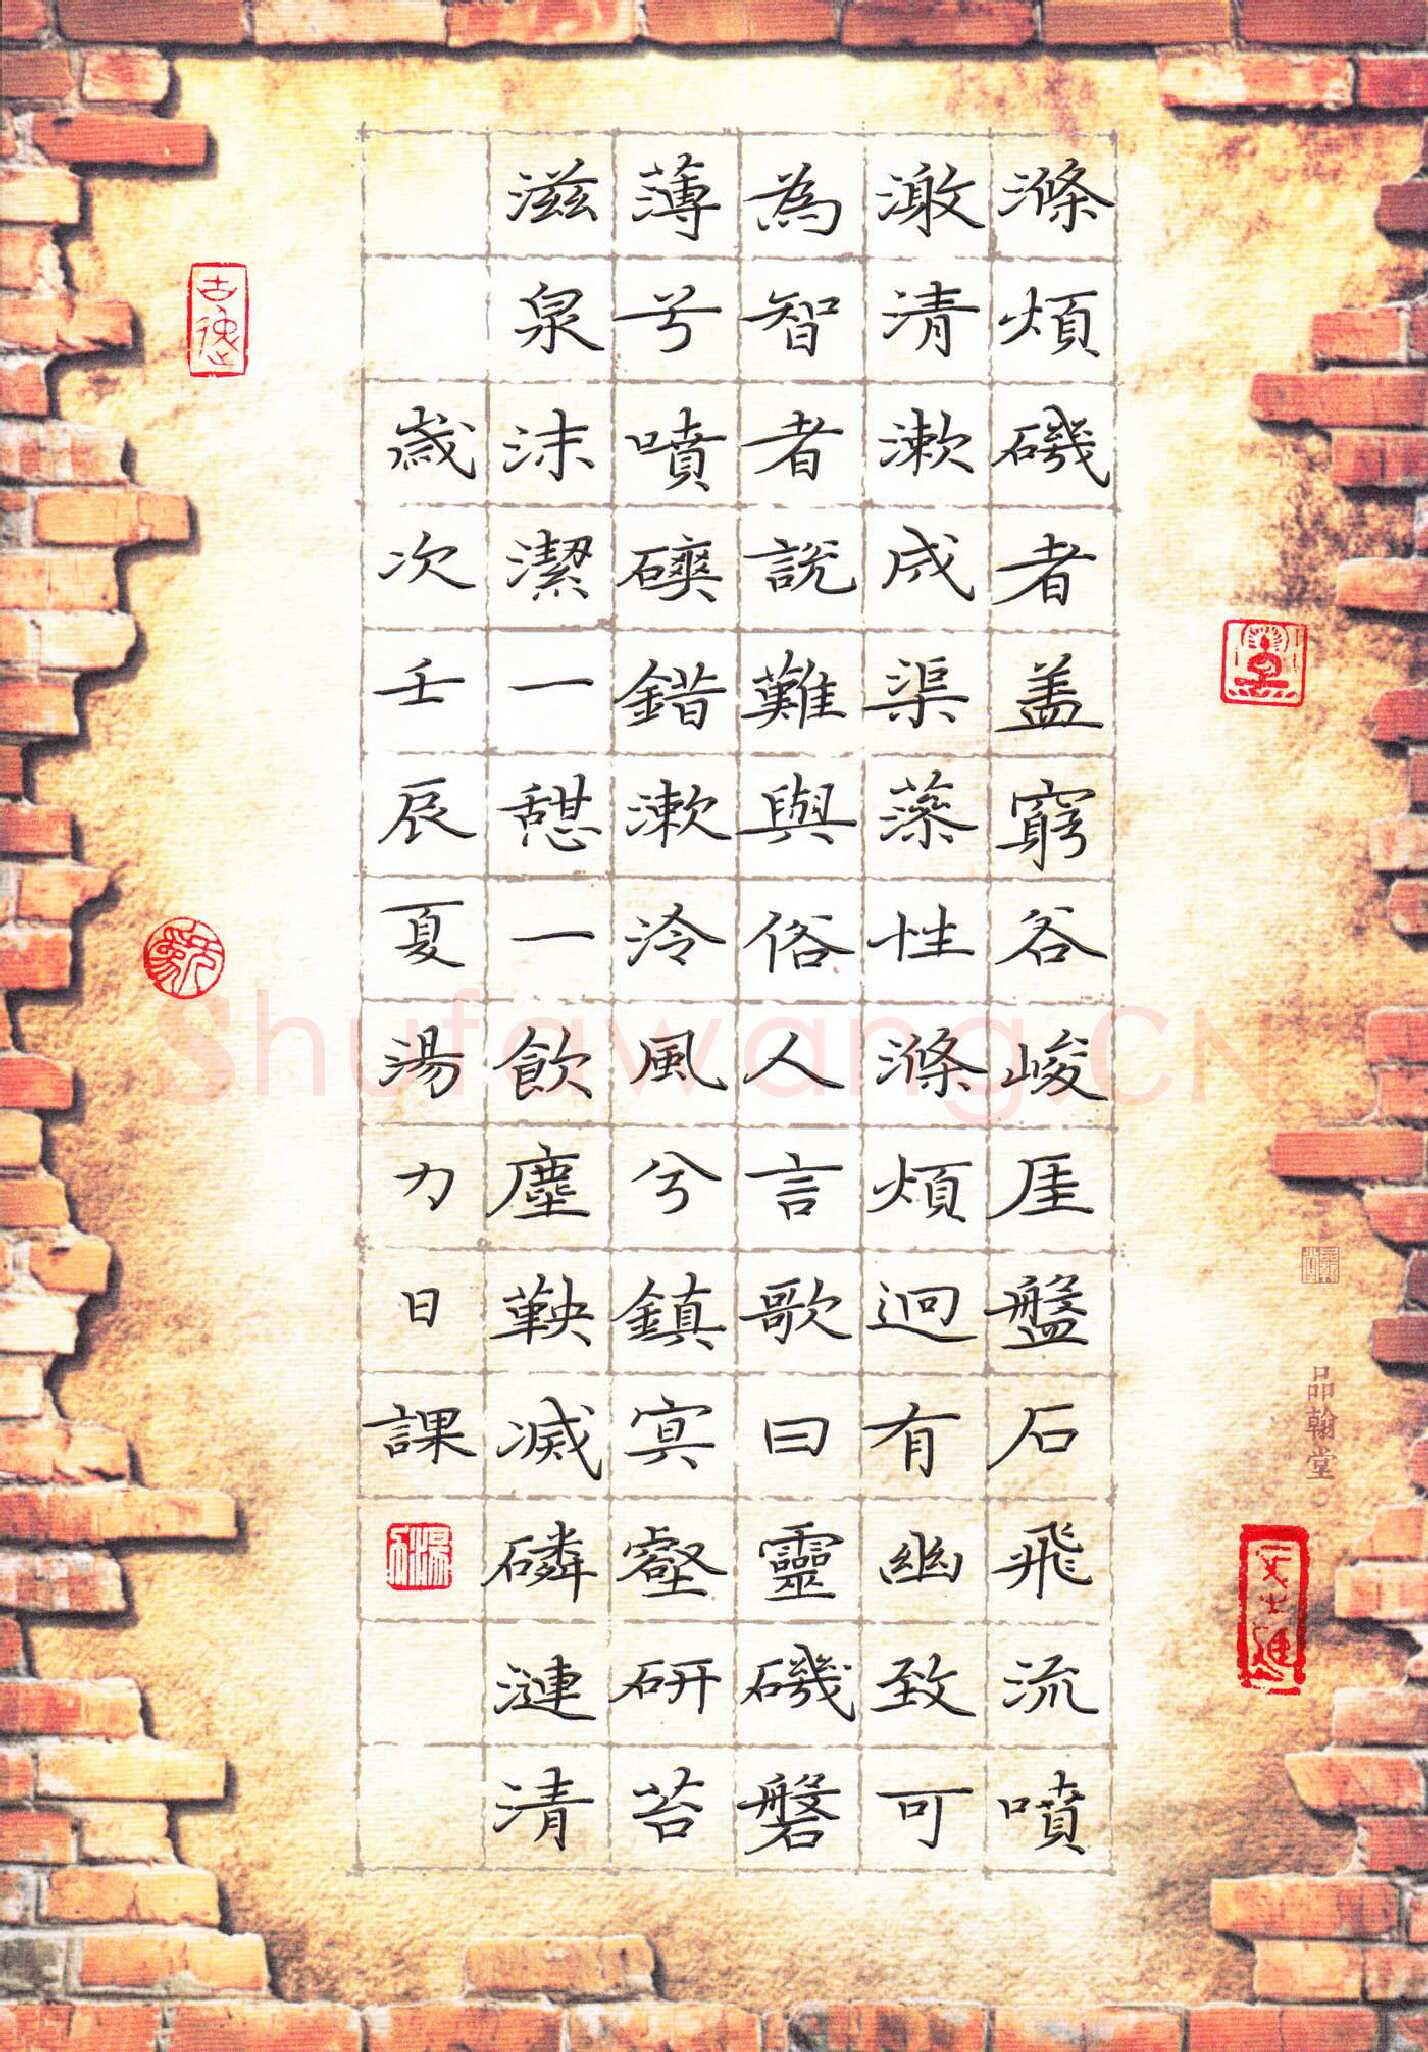 滌煩磯者盖窮谷峻厓盤石飛流噴
激清漱成渠藻性滌煩迥有幽致可
為智者說難與俗人言歌曰靈磯磐
薄兮噴磢錯漱泠風兮鎮冥壑研苔
滋泉沫潔一憇一飲塵鞅滅磷漣清
歲次壬辰夏湯力日課
品翰堂
Shufawang.CN